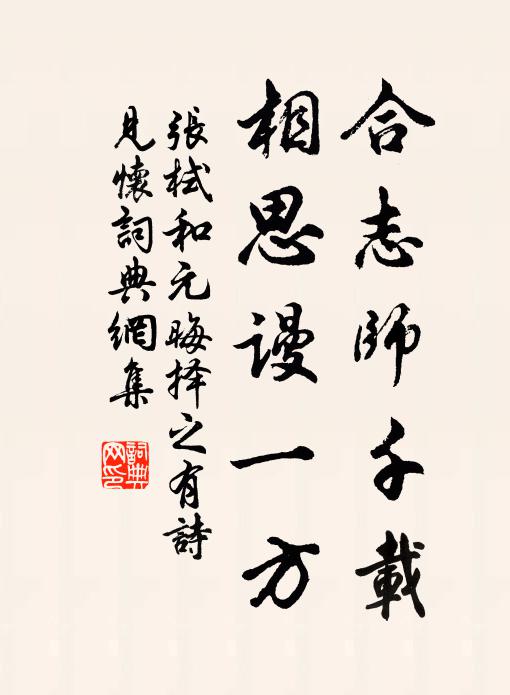 合志師千載
相思謾一方
張栻和元晦择之有詩
見懷詞典網集
詞典網印